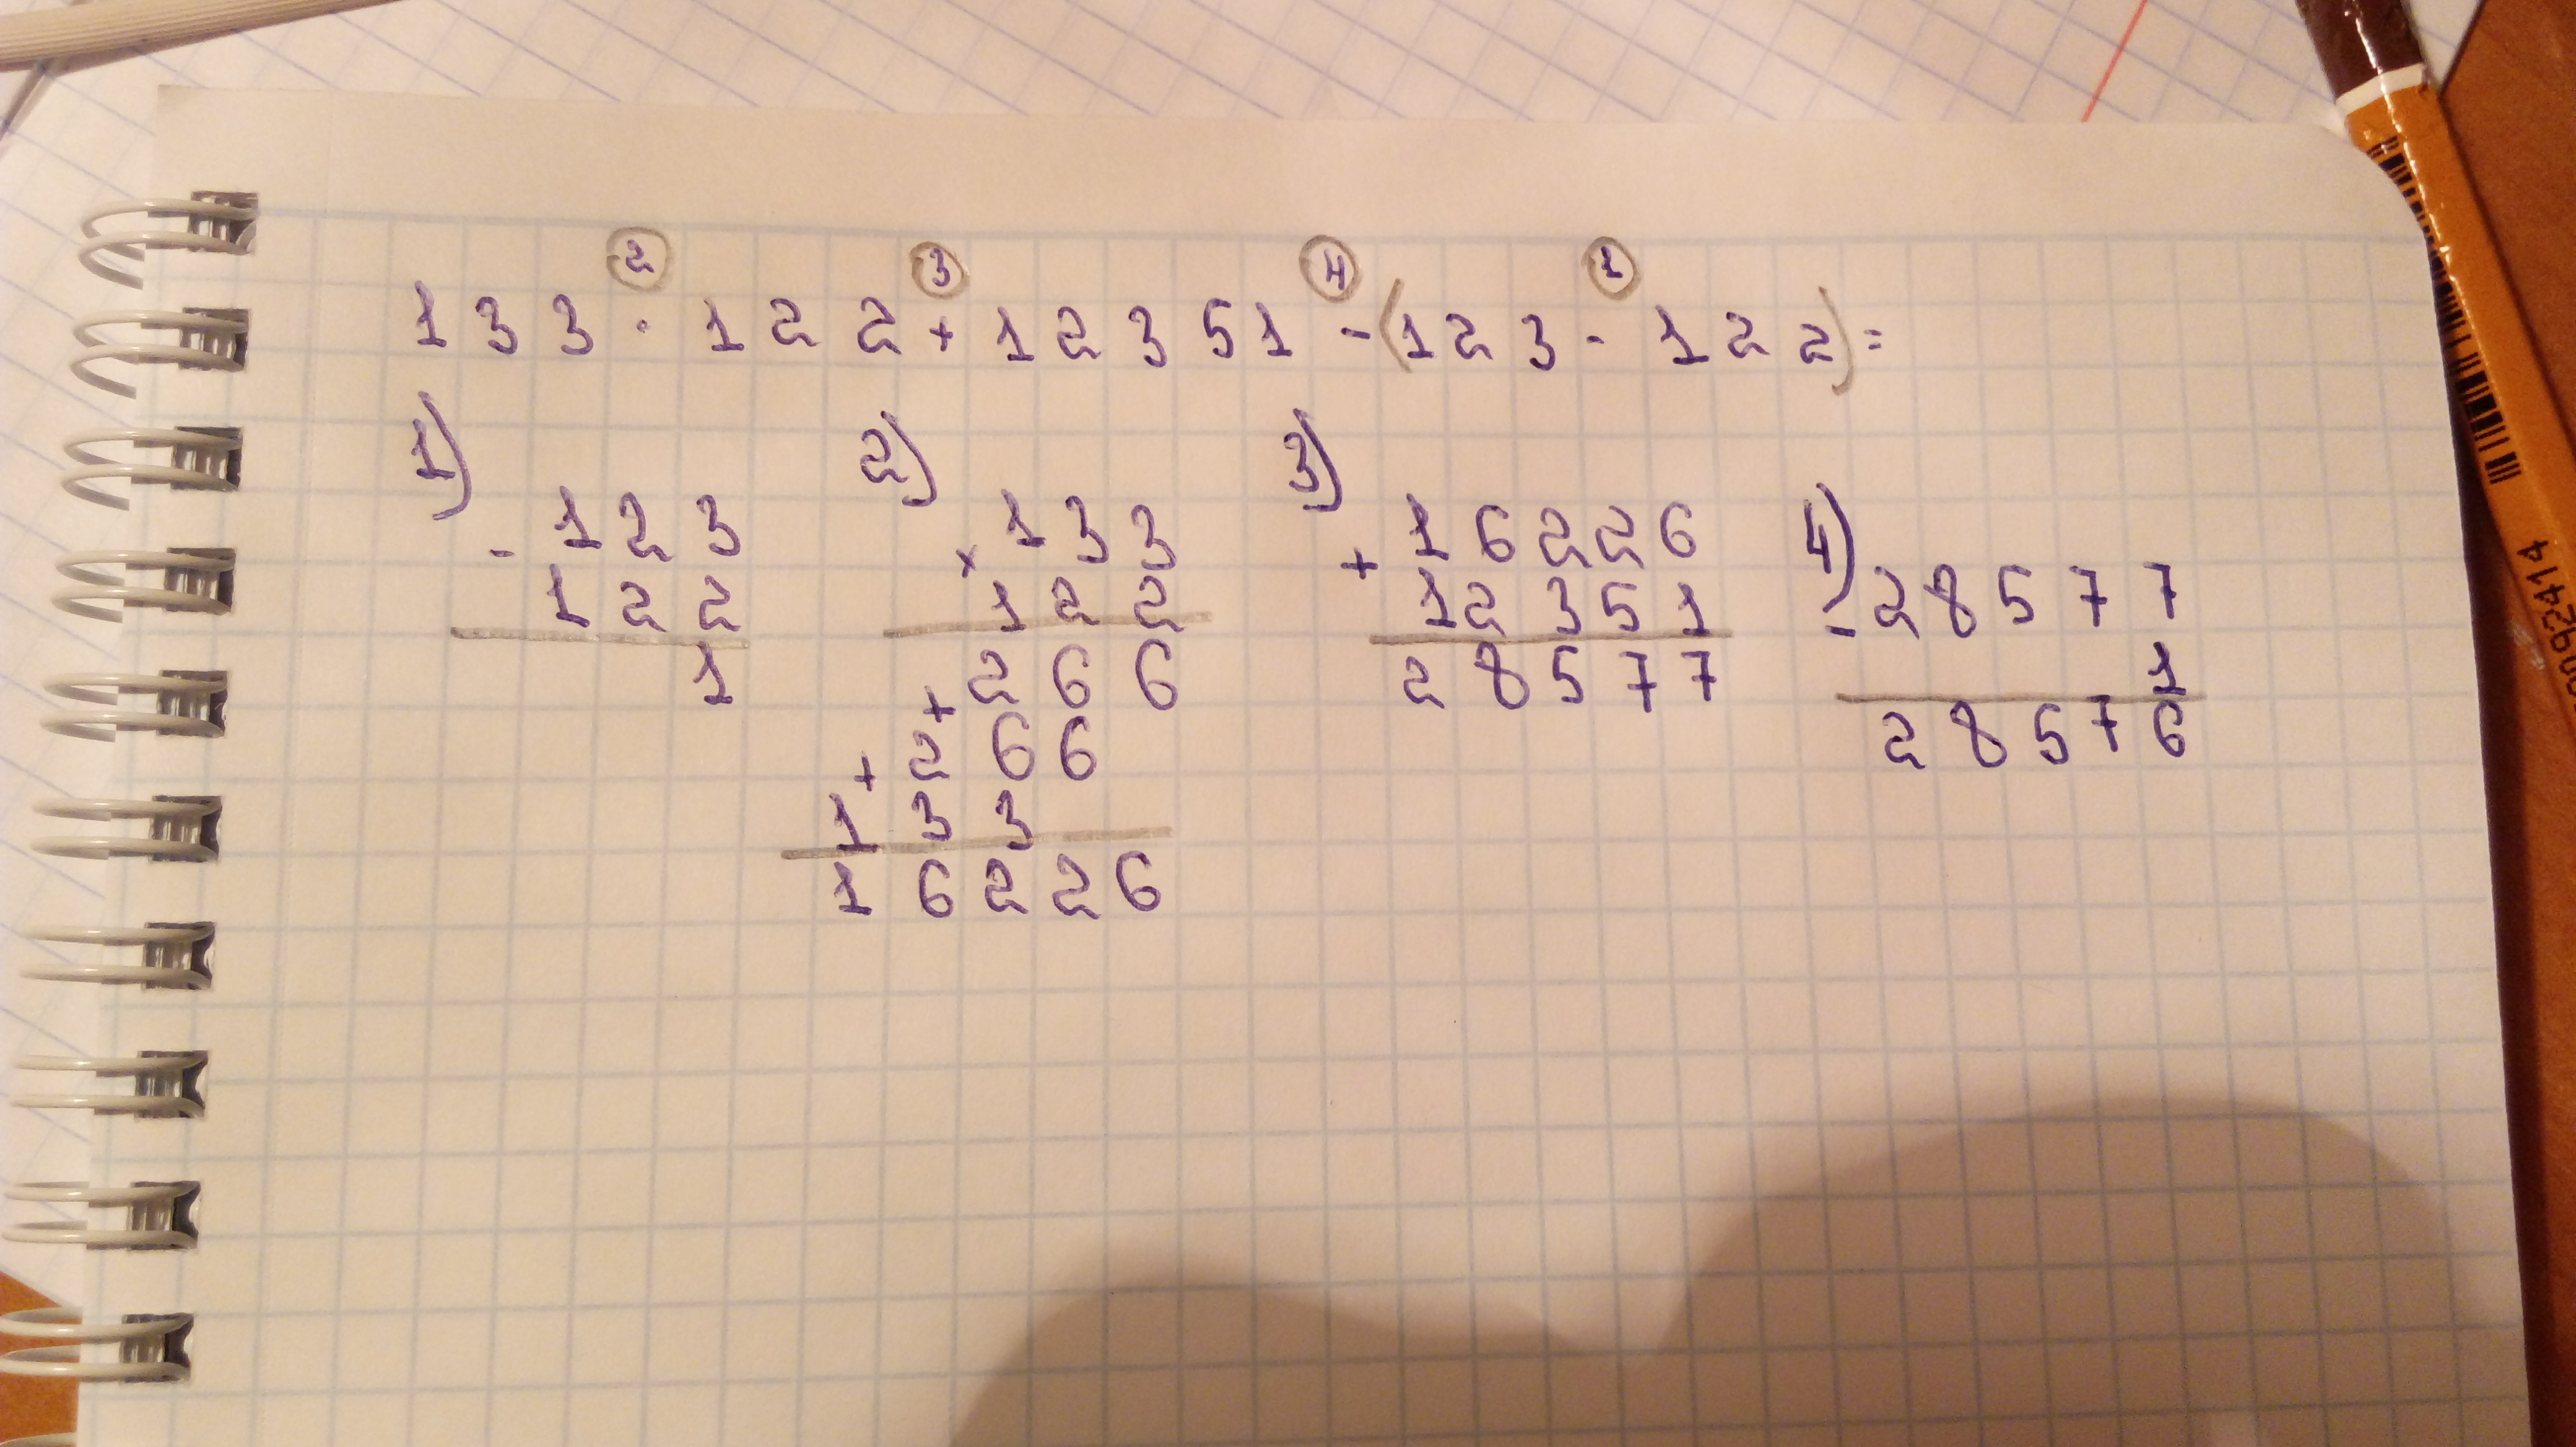 2 3 4 1
133 · 122 + 12351 - (123 - 122) =
1)
- 123
122
1
2)
× 133
122
266
+ 266
+ 133
16226
3)
+ 16226
12351
28577
4)
- 28577
1
28576